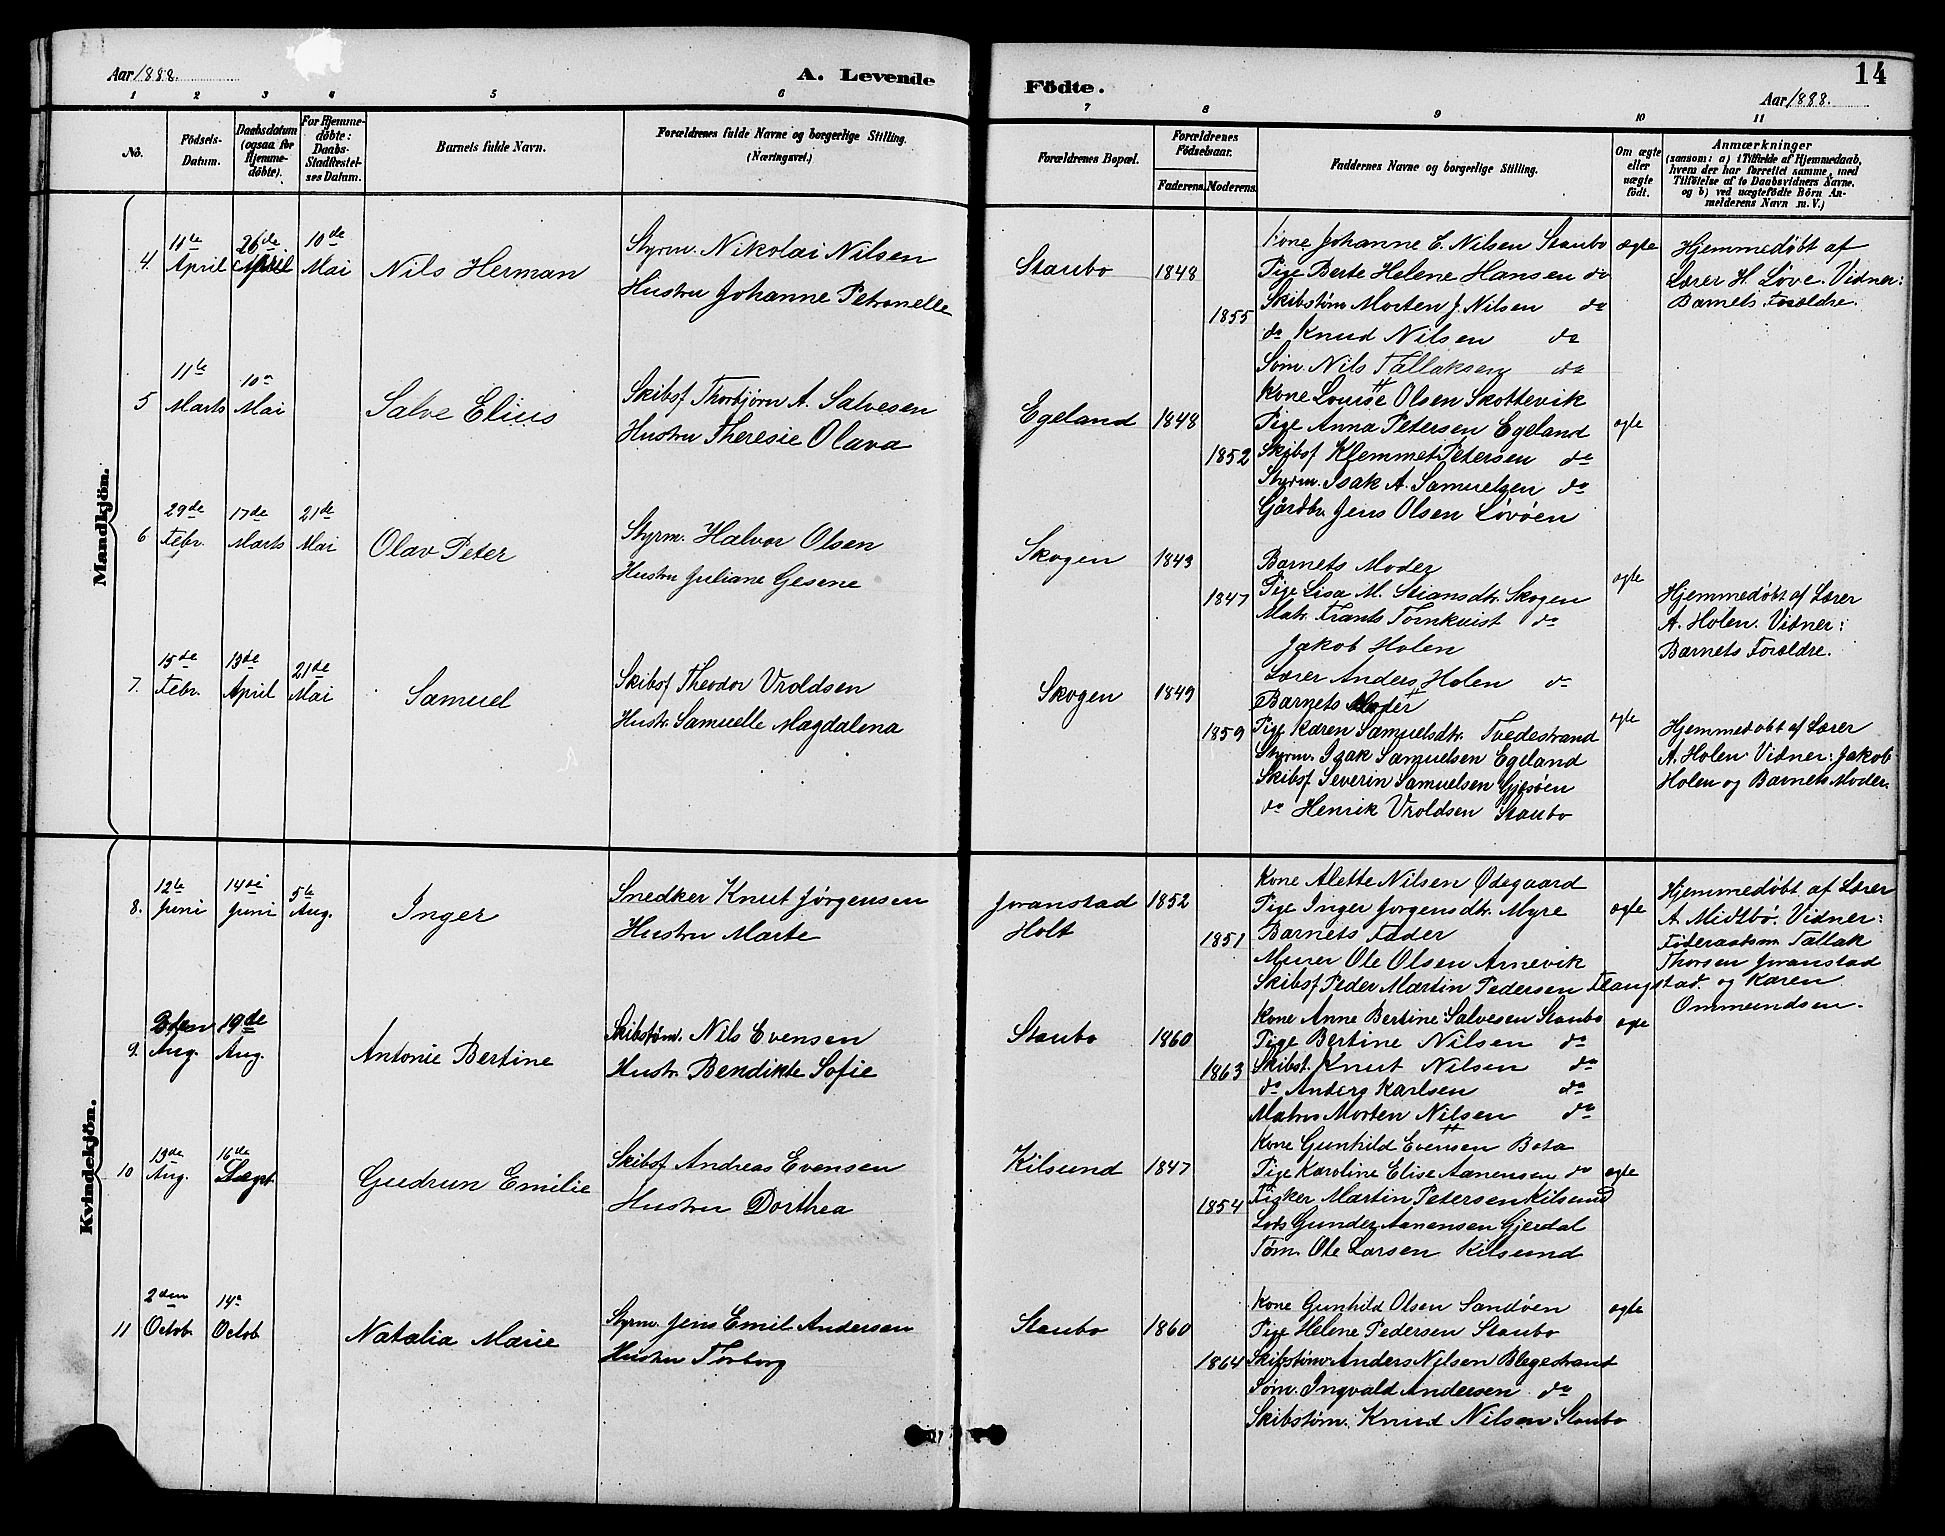 Aar 1888.
A. Levende Födte.
14
Aar 1888.
1 2 3 4 5 6 7 8 9 10 11
No.
Födsels-Datum.
Daabsdatum (ogsaa for Hjemme-döbte).
For Hjemme-döbte: Daabs-Stadfæstel-ses Datum.
Barnets fulde Navn.
Forældrenes fulde Navne og borgerlige Stilling.
(Næringsvei.)
Forældrenes Bopæl.
Forældrenes Födselsaar.
Faderens. Moderens.
Faddernes Navne og borgerlige Stilling.
Om ægte eller uægte födt.
Anmærkninger
(saasom: a) i Tilfælde af Hjemmedaab,
hvem der har forrettet samme, med
Tilföielse af to Daabsvidners Navne.
og b) ved uægtefödte Börn An-
melderens Navn m. V.)
Mandkjön.
4. 11te April 26de April 10de Mai
Nils Herman
Styrm. Nikolai Nilsen
Hustru Johanne Petronelle
Staubo
1848
1855
Kone Johanne E. Nilsen Staubo
Pige Berte Helene Hansen do
Skibstøm Morten J. Nilsen do
do Knud Nilsen do
Søm. Nils Tallaksen do
ægte
Hjemmedøbt af
Lærer H. Løve. Vidner:
Barnets Forældre.
5 11te Marts 10de Mai
Salve Elius
Skibsf Thorbjørn A. Salvesen
Hustru Theresie Olava
Egeland
1848
1852
Kone Louise Olsen Skottevik
Pige Anna Petersen Egeland
Skibsf Klemmet Petersen do
Styrm. Isak A. Samuelsen do
Gårdbr Jens Olsen Løvøen
ægte
6 29de Febr. 17de Marts 21de Mai
Olav Peter
Styrm. Halvor Olsen
Hustru Juliane Gesene
Skogen
1843
1847
Barnets Moder
Pige Lisa M. Stiansdtr. Skogen
Matr. Frants Tørnkvist do
Jakob Holen
Lærer Anders Holen do
ægte
Hjemmedøbt af Lærer
A. Holen. Vidner:
Barnets Forældre.
7. 15de Febr. 13de April 21de Mai
Samuel
Skibsf Theodor Vroldsen
Hustr. Samuelle Magdalena
Skogen
1849
1859
Barnets Moder
Pige Karen Samuelsdtr. Tvedestrand
Styrm. Isak Samuelsen Egeland
Skibsf Severin Samuelsen Gjesøen
do Henrik Vroldsen Staubo
ægte
Hjemmedøbt af Lærer
A. Holen. Vidner: Jakob
Holen og Barnets Moder.
Kvindekjön.
8. 12te Juni 14de Juni 5te Aug.
Inger
Snedker Knut Jørgensen
Hustru Marte
Joranstad
Holt
1852
1851
Kone Alette Nilsen Ødegaard
Pige Inger Jorgensdtr. Myre
Barnets Fader
Murer Ole Olsen Arnevik
Skibsf Peder Martin Pedersen Flangstad.
ægte
Hjemmedøbt af Lærer
A. Midtbø. Vidner:
Føderaadsm Tallak
Thorsen Joranstad
og Karen
Ommundsen.
9. 3den Aug. 19de Aug.
Antonie Bertine
Skibstøm. Nils Evensen
Hustr. Bendikte Sofie
Staubo
1860
1863
Kone Anne Bertine Salvesen Staubo
Pige Bertine Nilsen do
Skibst. Knut Nilsen do
do Anders Karlsen do
Matros Morten Nilsen do
ægte
10 19de Aug. 16de Sept.
Gudrun Emilie
Skibsf Andreas Evensen
Hustru Dorthea
Kilsund
1847
1854
Kone Gunhild Evensen Bota
Pige Karoline Elise Aanensen do
Fisker Martin Petersen Kilsund
Lods Gunder Aanensen Gjerdal
Tøm. Ole Larsen Kilsund
ægte
11 2den Octob. 14de Octob
Natalia Marie
Styrm. Jens Emil Andersen
Hustru Torborg
Staubo
1860
1864
Kone Gunhild Olsen Sandøen
Pige Helene Pedersen Staubo
Skibstøm. Anders Nilsen Blegestrand
Søm. Ingvald Andersen do
Skibstøm. Knud Nilsen Staubo
ægte